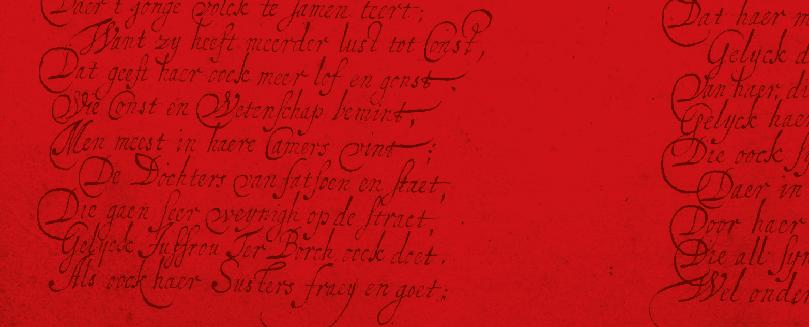 Daer t jonge volck te samen teert:
Want zy heeft meerder lust tot Const,
Dat geeft haer oock meer lof en gonst
Wie Const en Wetenschap bemint,
Men meest in haere Camers vint:
De Dochters van fatsoen en staet,
Die gaen seer weynigh op de straet,
Gelyck Juffrou Ter Borch oock doet.
Als oock haer Susters fraey en goet:
Dat haer
Gelyck d
Van haer, di
Gelyck haer
Die oock
Daer in
Door haer
Die all
Wel onder